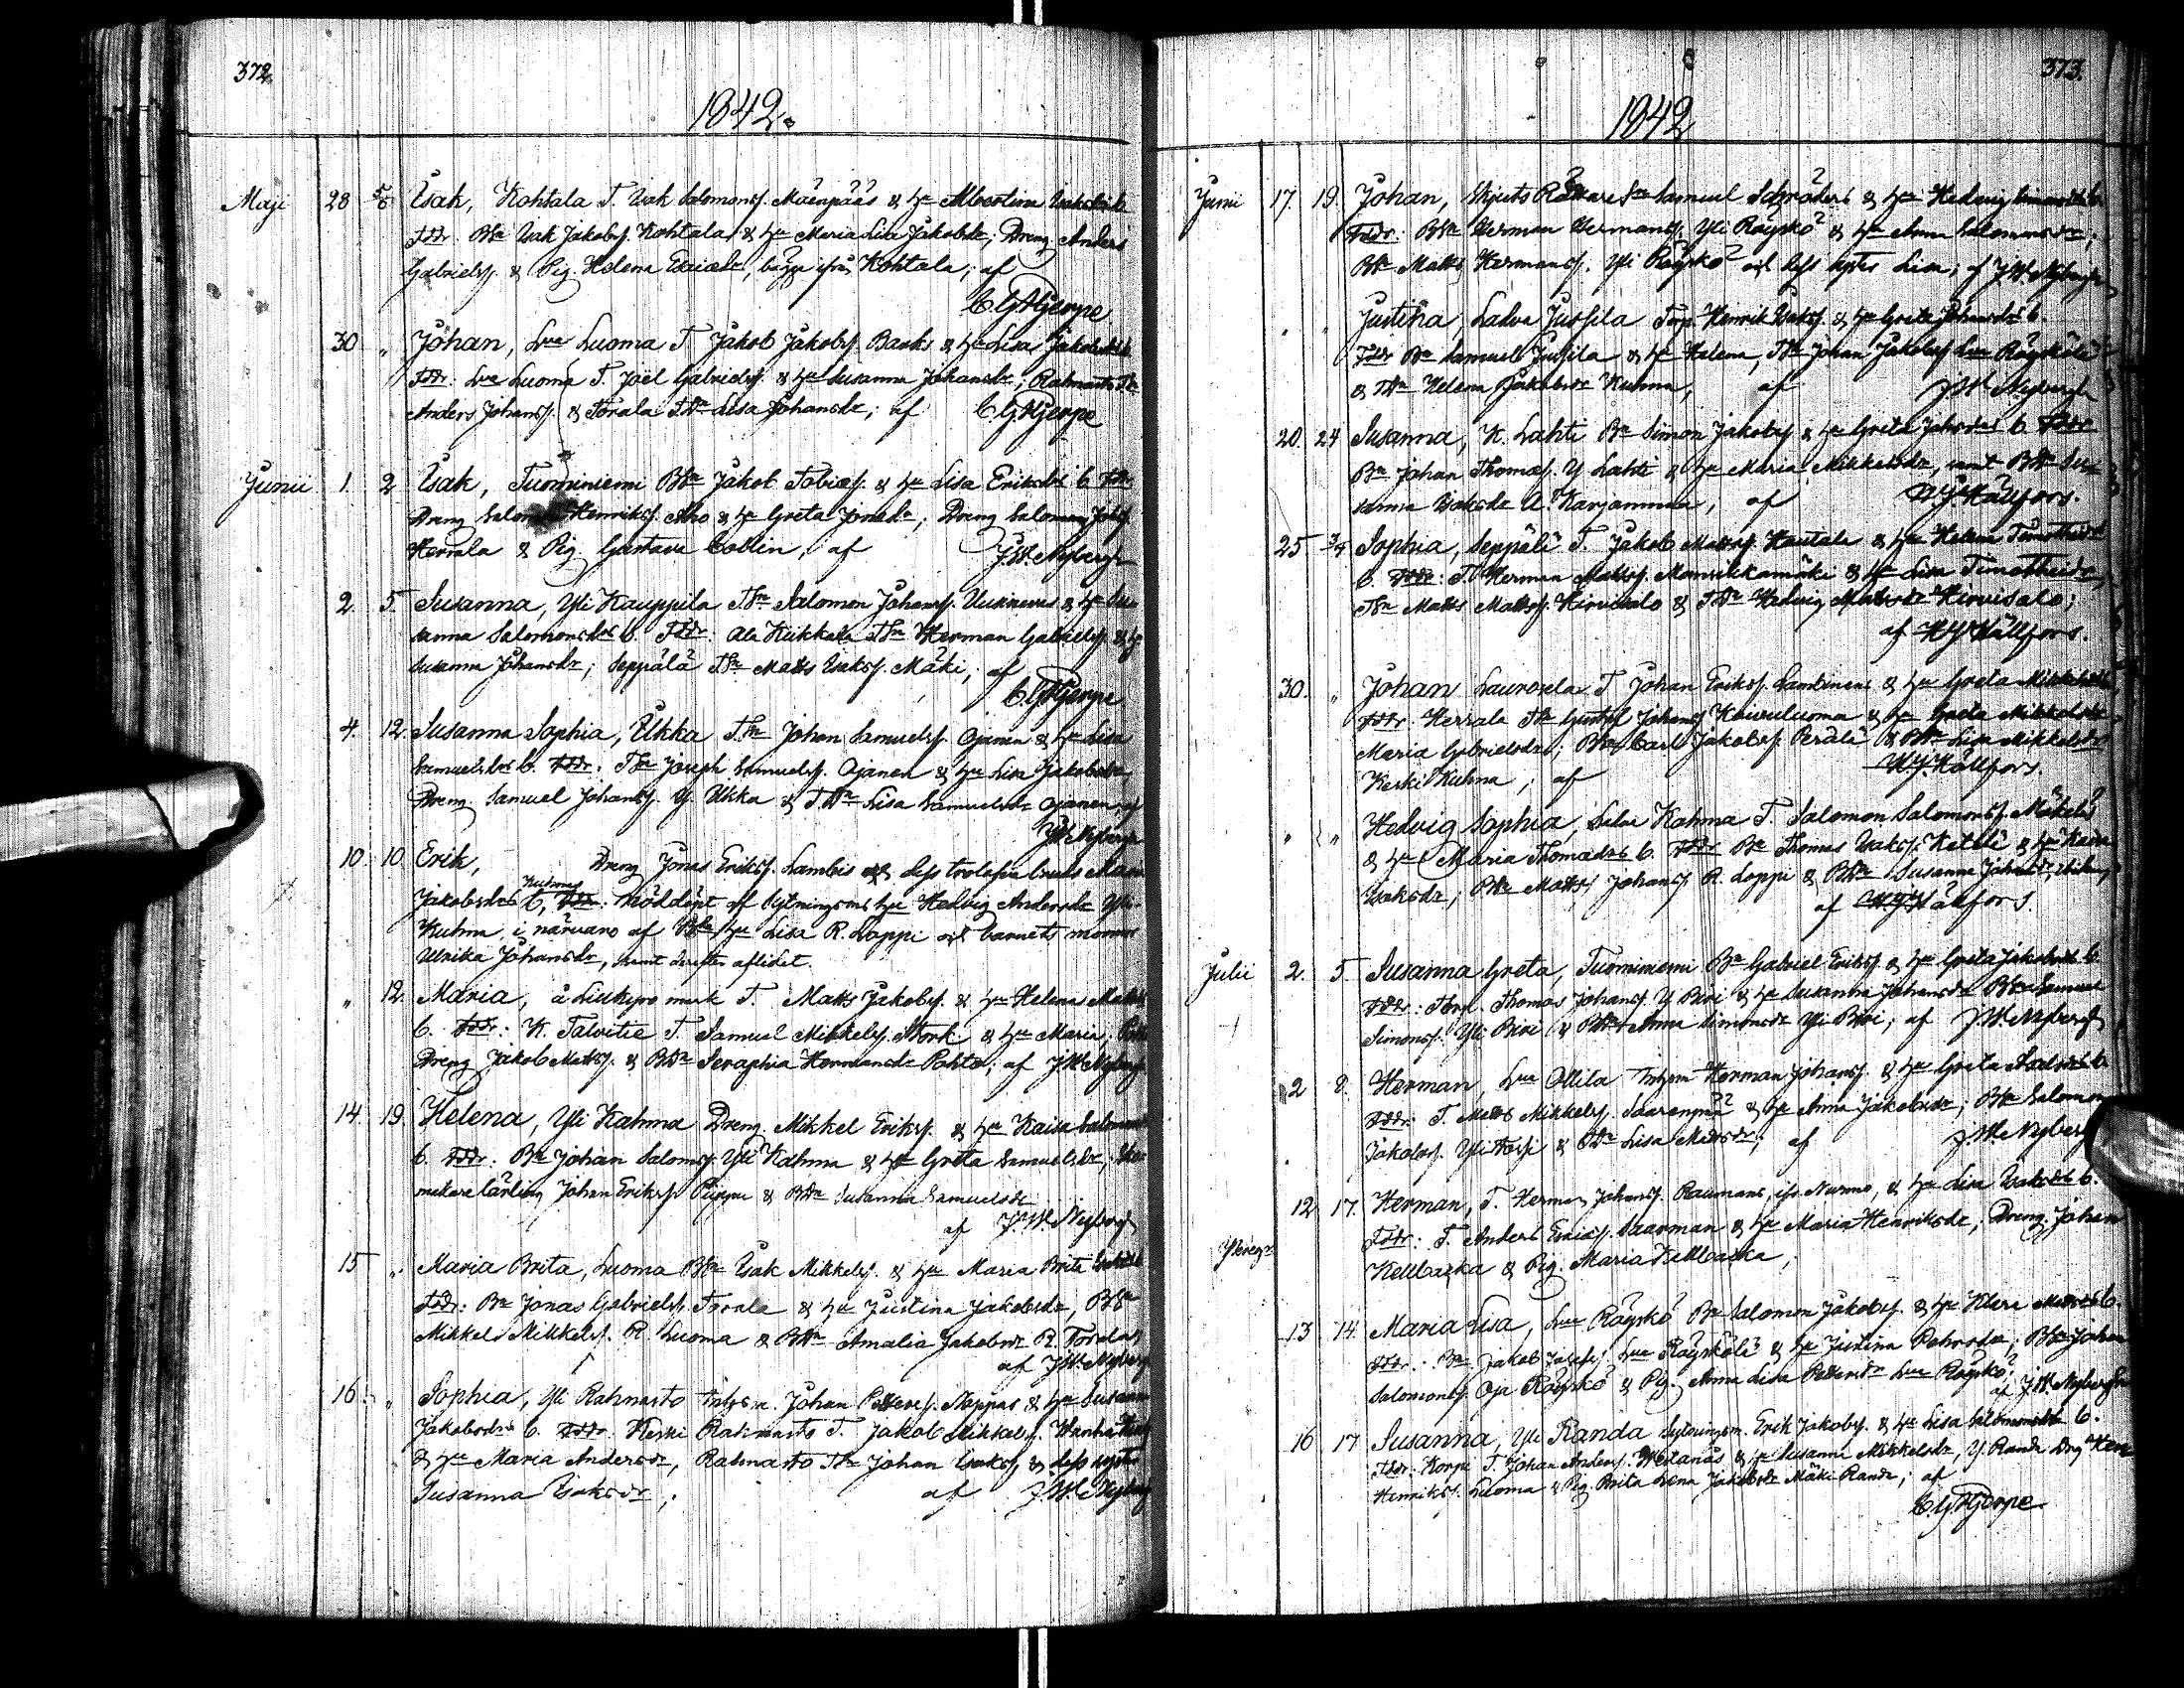 372.
1842.
Maji 28 5/6 Isak, Kohtala T. Isak Salomonss. Mäenpääs & hu Albertina Isaksdrs b.
Fddr. Bn Isak Jakobss. Kohtala & hu Maria Lisa Jakobsdr; Dreng Anders
Gabrielss. & Pig. Helena, bägge ifrån Kohtala; af
C. G. Hjerpe
30 " Johan, Lua Luoma T. Jakob Jakobss. Backs & hu Lisa Jakobsdrs b
Fddr: Lua Luoma T. Joël Gabrielss. & hu Susanna Johansdr; Rahnasto
Anders Johanss. & Torala TDr Lisa Johansdr; af C. G. Hjerpe
Junii 1. 2 Isak, Tuominiemi BSn Jakob Tobiæss. & hu Lisa Eriksdrs b. Fddr
Dreng Henrikss. Aho & hu Greta; Dreng Salomon
Herrala & Pig. Gustava Collin, af J. W. Nybergh
2. 5. Susanna, Yli Kauppila T.Sn Salomon Johanss. & hu Su
sanna Salomonsdrs b. Fddr. Ala Kiikkala TSn Herman Gabrielss. & h
Susanna Johansdr; Seppälä TSn Matts Isakss. Mäki; af
C. G. Hjerpe
4. 12. Susanna Sophia, Ukka T.Sn Johan Samuelss. Ojanen & hu Lisa
Samuelsdrs b. Fddr: TSn Joseph Samuelss. Ojanen & hu Lisa Jakobsdr
Dreng. Samuel Johanss. Y. Ukka & T.Dr Lisa Samuelsdr Ojanen; af
J. W. Nybergh
10. 10. Erik, Dreng Jonas Erikss. Lambis och dess trolofvade bruds Maria
Jakobsdrs Kuhnas b, Fddr: nöddöpt af Sytningsms hu Hedvig Andersdr Yli-
Kuhna i närvaro af BSn hu Lisa R. Loppi och barnets mormor
Ulrika Johansdr, samt derefter aflidet.
" 12. Maria, å Liukuporo mark T. Matts Jakobss. & hu Helenas Matts
b. Fddr: K. Talvitie T. Samuel Mikkelss. Stork & hu Maria
Dreng Jakob Mattss. & BDr Seraphia Hermansdr Pohto; af J W Nybergh
14. 19. Helena, Yli Kahma Dreng. Mikkel Erikss. & hu Kaisa Salomons
b. Fddr: Bn Johan Salomonss. Yli Kahma & hu Greta Samuelsdr; Sko-
makare lärling Johan Erikss. & BDr Susanna Samuelsdr
af J. W. Nybergh
15 " Maria Brita, Luoma BSn Isak Mikkelss. & hu Maria Brita
Fddr: Bn Jonas Gabrielss. Torala & hu Justina Jakobsdr, BSn
Mikkel Mikkelss. R. Luoma & BDr Amalia Jakobsdr R. Torala
af J. W. Nybergh
16 " Sophia, Yli Rahnasto Inhysm. Johan Petterss. Nappas & hu Susanna
Jakobsdrs b. Fddr. Keski Rahnasto T. Jakob Mikkelss.
& hu Maria Andersdr, Rahnasto TSn Johan Isakss. & dess syster
Susanna Isaksdr; af J. W. Nybergh
373.
1842
Junii 17. 19. Johan, Samuel Schröders & hu Hedvig Simonsdrs b.
Fddr: BSn Herman Hermanss. Yli Röyskö & hu Anna Salomonsdr;
BSn Matts Hermanss. Yli Röyskö och dess syster Lisa; af J. W. Nybergh
" " Justina, Ladva Jussila Torp. Henrik Isakss. & hu Greta Johansdrs b.
Fddr Bn Samuel Jussila & hu Helena, TSn Johan Jakobss. Lua Röyskölä
& TDr Helena Jakobsdr Kuhna, af J W Nybergh
20. 24 Susanna, K. Lahti Bn Simon Jakobss. & hu Greta Johsdrs b. Fddr
Bn Johan Thomæss. Y. Lahti & hu Maria Mikkelsdr, samt BDr Su-
sanna Isaksdr U. Karjanmaa, af H J Hällfors.
25. 3/7 Sophia, Seppälä T. Jakob Mattss. Hautala & hu Helena Timotheidrs
b. Fddr: T. Herman Mattss. Mansikkamäki & hu Lisa Timotheidr,
TSn Matts Mattss. Hirvisalo & TDr Hedvig Mattsdr Hirvisalo;
af H J Hällfors.
30. " Johan Laurosela T. Johan Erikss. Lambinens & hu Greta Mikkelsdrs
Fddr. Herrala TSn Gustaf Johanss. Koivuluoma & hu Greta Mikkelsdr
Maria Gabrielsdr; BSn Carl Jakobss. Perälä & BDr Lisa Mikkelsdr
Keski Kuhna; af H J. Hällfors.
" " Hedvig Sophia, Kahma T. Salomon Salomonss. Mäkelä
& hu Maria Thomædrs b. Fddr Bn Thomas Isakss. Ketola & hu Kaisa
Isaksdr; BSn Matts Johanss. R. Loppi & BDr Susanna Johansdr,
af H J Hällfors.
Julii 2. 5. Susanna Greta, Tuominiemi Bn Gabriel Erikss. & hu Greta Jakobsdrs b.
Fddr: Thomas Johanss. Y Biri & hu Susanna Johansdr BSn Samuel
Simonss. Yli Biri & BDr Anna Simonsdr Yli Biri; af J W Nybergh
2 8. Herman, Lua Ollila Inhysm Herman Johanss. & hu Greta b
Fddr: T. Matts Mikkelss. Saarenpää & hu Anna Jakobsdr; BSn Salomon
Jakobss. & TDr Lisa Mattsdr; af J W Nybergh
12 17. Herman, T. Herman Johanss. Raumans, ifr. Nurmo, & hu Lisa Isaksdrs b.
Fddr: T. Anders Saarman & hu Maria Henriksdr, Dreng. Johan
Kellbacka & Pig. Maria Kellbacka;
13 14. Maria Lisa, Lua Röyskö Bn Salomon Jakobss. & hu Mattsdrs b.
Fddr. Bn Jakob Josefss. Lua Röyskölä & hu Justina; BSn Johan
Salomonss. Oja Röyskö & Pig. Anna Lisa Pettersdr Lua Röyskö,
af J W Nybergh
16 17 Susanna, Yli Randa Sytningsm. Erik Jakobss. & hu Lisa Salomonsdrs b.
Fddr: Korpi T. Johan Anderss. & hu Susanna Mikkelsdr, Y. Randa Dng
Henrikss. Luoma & Pig. Brita Lena Jakobsdr Mäki-Randa; af
C. G. Hjerpe